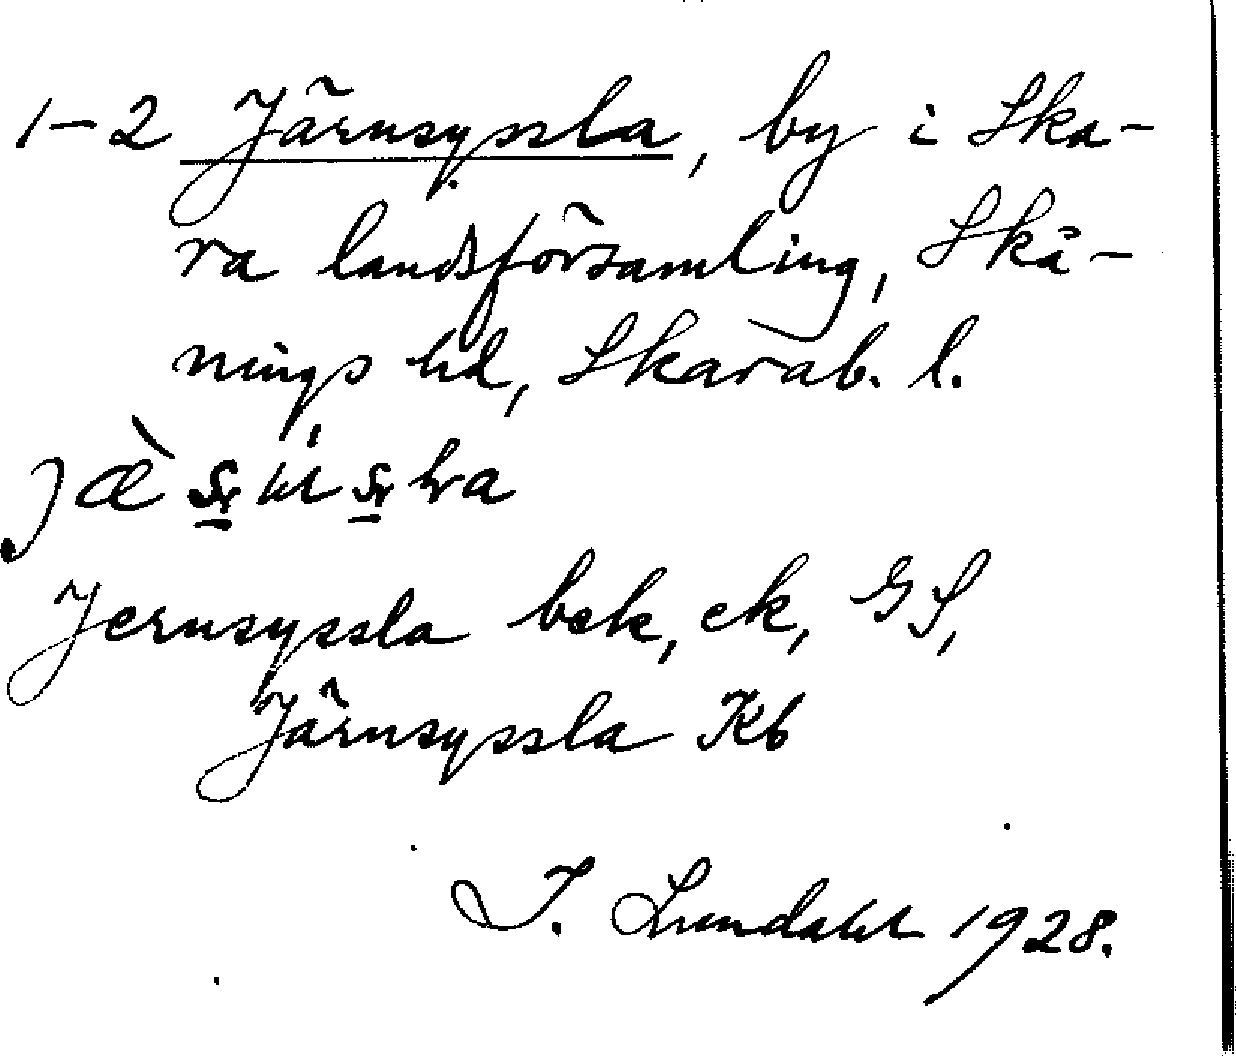 1-2 Järnsyssla, by i Ska-
ra landsförsamling, Skå-
nings hd, Skarab. l.
Jernsyssla bek, ek, GS,
Järnsyssla Kb
I. Lundahl 1928.